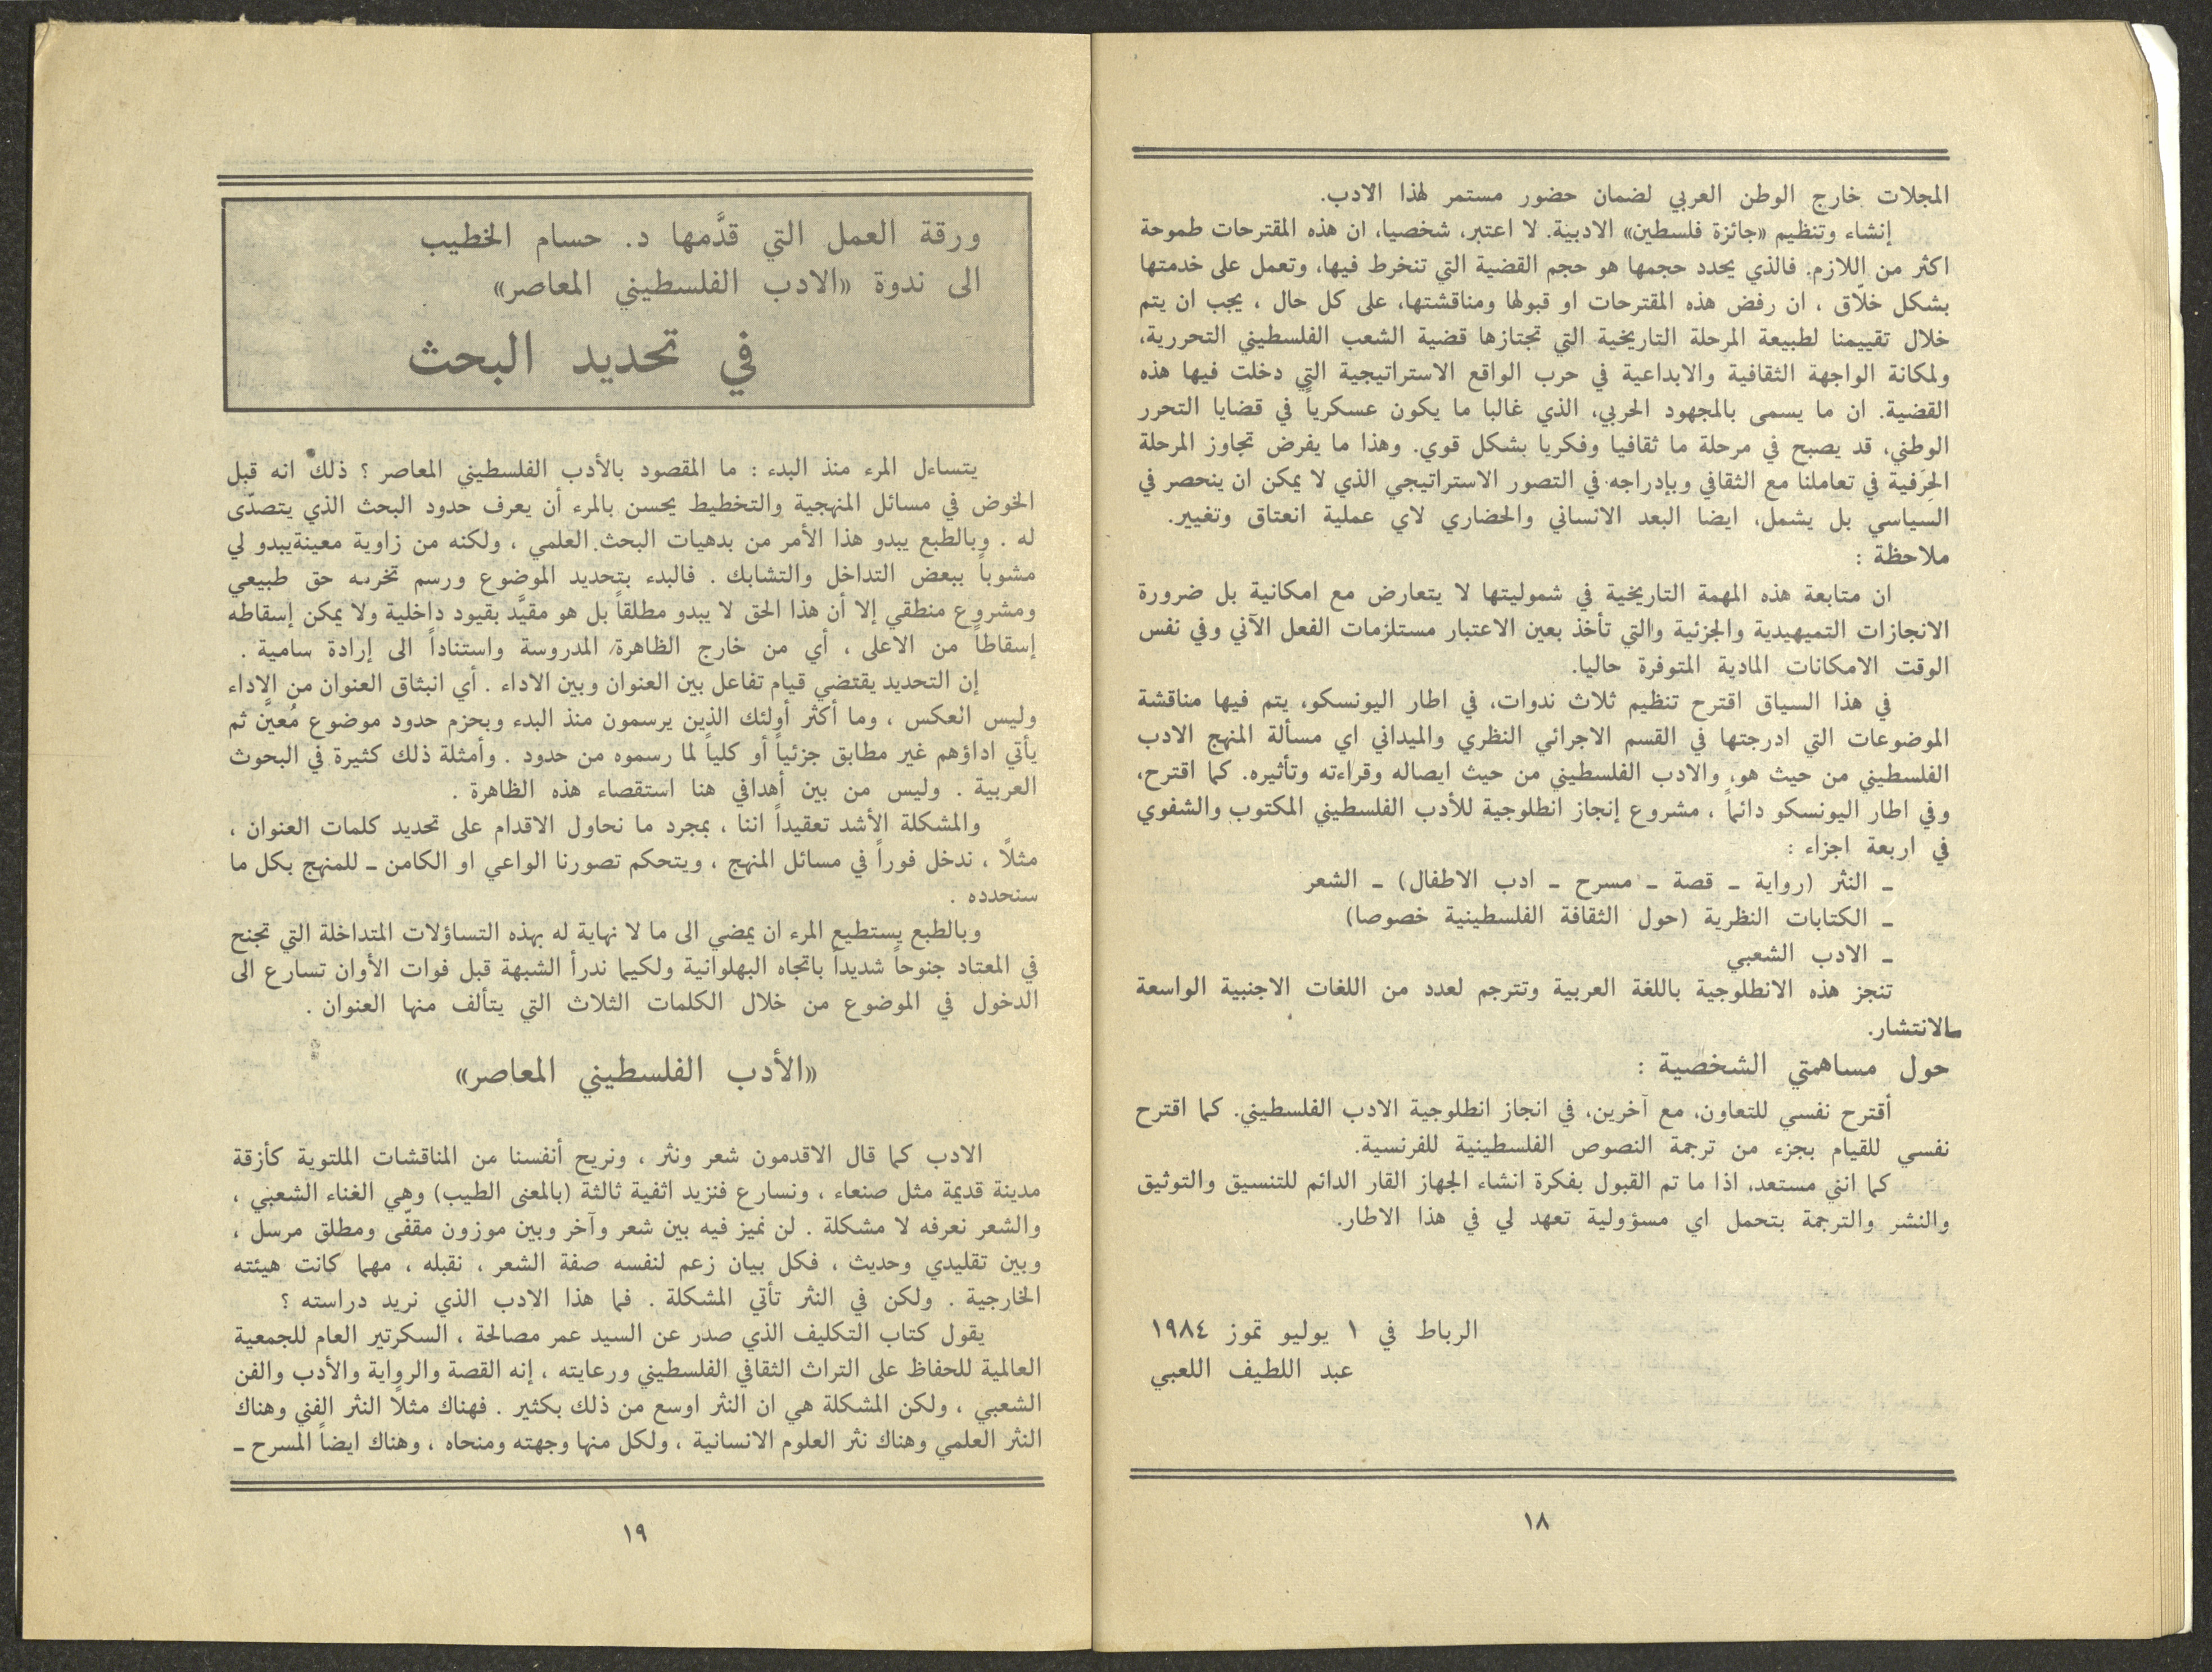 المجلات خارج الوطن العربي لضمان حضور مستمر لهذا الادب.
إنشاء وتنظيم «جائزة فلسطين» الادبية. لا اعتبر، شخصيا، ان هذه المقترحات طموحة
اكثر من اللازم. فالذي يحدد حجمها هو حجم القضية التي تنخرط فيها، وتعمل على خدمتها
بشكل خلّاق ، ان رفض هذه المقترحات او قبولها ومناقشتها، على كل حال ، يجب ان يتم
خلال تقييمنا لطبيعة المرحلة التاريخية التي تجتازها قضية الشعب الفلسطيني التحررية،
ولمكانة الواجهة الثقافية والابداعية في حرب الواقع الاستراتيجية التي دخلت فيها هذه
القضية. ان ما يسمى بالمجهود الحربي، الذي غالبا ما يكون عسكرياً في قضايا التحرر
الوطني، قد يصبح في مرحلة ما ثقافيا وفكريا بشكل قوي. وهذا ما يفرض تجاوز المرحلة
الحِرَفية في تعاملنا مع الثقافي وبإدراجه في التصور الاستراتيجي الذي لا يمكن ان ينحصر في
السياسي بل يشمل، ايضا البعد الانساني والحضاري لاي عملية انعتاق وتغيير.
ملاحظة :
ان متابعة هذه المهمة التاريخية في شموليتها لا يتعارض مع امكانية بل ضرورة
الانجازات التمهيدية والجزئية والتي تأخذ بعين الاعتبار مستلزمات الفعل الآني وفي نفس
الوقت الامكانات المادية المتوفرة حاليا.
في هذا السياق اقترح تنظيم ثلاث ندوات، في اطار اليونسكو، يتم فيها مناقشة
الموضوعات التي ادرجتها في القسم الاجرائي النظري والميداني اي مسألة المنهج الادب
الفلسطيني من حيث هو، والادب الفلسطيني من حيث ايصاله وقراءته وتأثيره. كما اقترح،
وفي اطار اليونسكو دائماً ، مشروع إنجاز انطلوجية للأدب الفلسطيني المكتوب والشفوي
في اربعة اجزاء :
ـ النثر (رواية ـ قصة ـ مسرح ـ ادب الاطفال) ـ الشعر
ـ الكتابات النظرية (حول الثقافة الفلسطينية خصوصا)
ـ الادب الشعبي
تنجز هذه الانطلوجية باللغة العربية وتترجم لعدد من اللغات الاجنبية الواسعة
الانتشار.
حول مساهمتي الشخصية :
أقترح نفسي للتعاون، مع آخرين، في انجاز انطلوجية الادب الفلسطيني. كما اقترح
نفسي للقيام بجزء من ترجمة النصوص الفلسطينية للفرنسية.
كما انني مستعد، اذا ما تم القبول بفكرة انشاء الجهاز القار الدائم للتنسيق والتوثيق
والنشر والترجمة بتحمل اي مسؤولية تعهد لي في هذا الاطار.
الرباط في ١ يوليو تموز ١٩٨٤
عبد اللطيف اللعبي
١٨
ورقة العمل التي قدَّمها د. حسام الخطيب
الى ندوة «الادب الفلسطيني المعاصر»
في تحديد البحث
يتساءل المرء منذ البدء : ما المقصود بالأدب الفلسطيني المعاصر ؟ ذلك انه قبل
الخوض في مسائل المنهجية والتخطيط يحسن بالمرء أن يعرف حدود البحث الذي يتصدّى
له . وبالطبع يبدو هذا الأمر من بدهيات البحث العلمي ، ولكنه من زاوية معينةيبدو لي
مشوباً ببعض التداخل والتشابك . فالبدء بتحديد الموضوع ورسم حق طبيعي
ومشروع منطقي إلا أن هذا الحق لا يبدو مطلقاً بل هو مقيَّد بقيود داخلية ولا يمكن إسقاطه
إسقاطاً من الاعلى ، أي من خارج الظاهرة المدروسة واستناداً الى إرادة سامية .
إن التحديد يقتضي قيام تفاعل بين العنوان وبين الاداء . أي انبثاق العنوان من الاداء
وليس العكس ، وما أكثر أولئك الذين يرسمون منذ البدء وبحزم حدود موضوع مُعيَّن ثم
يأتي اداؤهم غير مطابق جزئياً أو كلياً لما رسموه من حدود . وأمثلة ذلك كثيرة في البحوث
العربية . وليس من بين أهدافي هنا استقصاء هذه الظاهرة .
والمشكلة الأشد تعقيداً اننا ، بمجرد ما نحاول الاقدام على تحديد كلمات العنوان ،
مثلًا ، ندخل فوراً في مسائل المنهج ، ويتحكم تصورنا الواعي او الكامن ـ للمنهج بكل ما
سنحدده .
وبالطبع يستطيع المرء ان يمضي الى ما لا نهاية له بهذه التساؤلات المتداخلة التي تجنح
في المعتاد جنوحاً شديداً باتجاه البهلوانية ولكيما ندرأ الشبهة قبل فوات الأوان تسارع الى
الدخول في الموضوع من خلال الكلمات الثلاث التي يتألف منها العنوان .
«الأدب الفلسطيني المعاصر»
الادب كما قال الاقدمون شعر ونثر ، ونريح أنفسنا من المناقشات الملتوية كأزقة
مدينة قديمة مثل صنعاء ، ونسارع فنزيد اثفية ثالثة (بالمعنى الطيب) وهي الغناء الشعبي ،
والشعر نعرفه لا مشكلة . لن نميز فيه بين شعر وآخر وبين موزون مقفّى ومطلق مرسل ،
وبين تقليدي وحديث ، فكل بيان زعم لنفسه صفة الشعر ، نقبله ، مهما كانت هيئته
الخارجية . ولكن في النثر تأتي المشكلة . فما هذا الادب الذي نريد دراسته ؟
يقول كتاب التكليف الذي صدر عن السيد عمر مصالحة ، السكرتير العام للجمعية
العالمية للحفاظ على التراث الثقافي الفلسطيني ورعايته ، إنه القصة والرواية والأدب والفن
الشعبي ، ولكن المشكلة هي ان النثر اوسع من ذلك بكثير . فهناك مثلًا النثر الفني وهناك
النثر العلمي وهناك نثر العلوم الانسانية ، ولكل منها وجهته ومنحاه ، وهناك ايضاً المسرح ـ
١٩